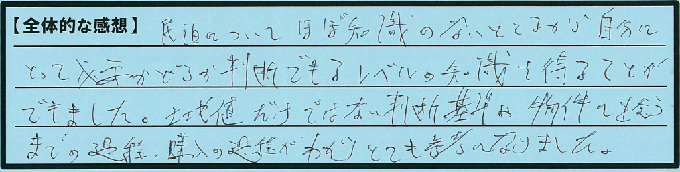 【全体的な感想】 について ほぼ知識のないところから自分に
とって必要かどうか判断できるレベルの知識を得ることが
できました。土地値だけではない判断基準や物件に出会う
までの過程、購入の過程がわかりとても参考になりました。